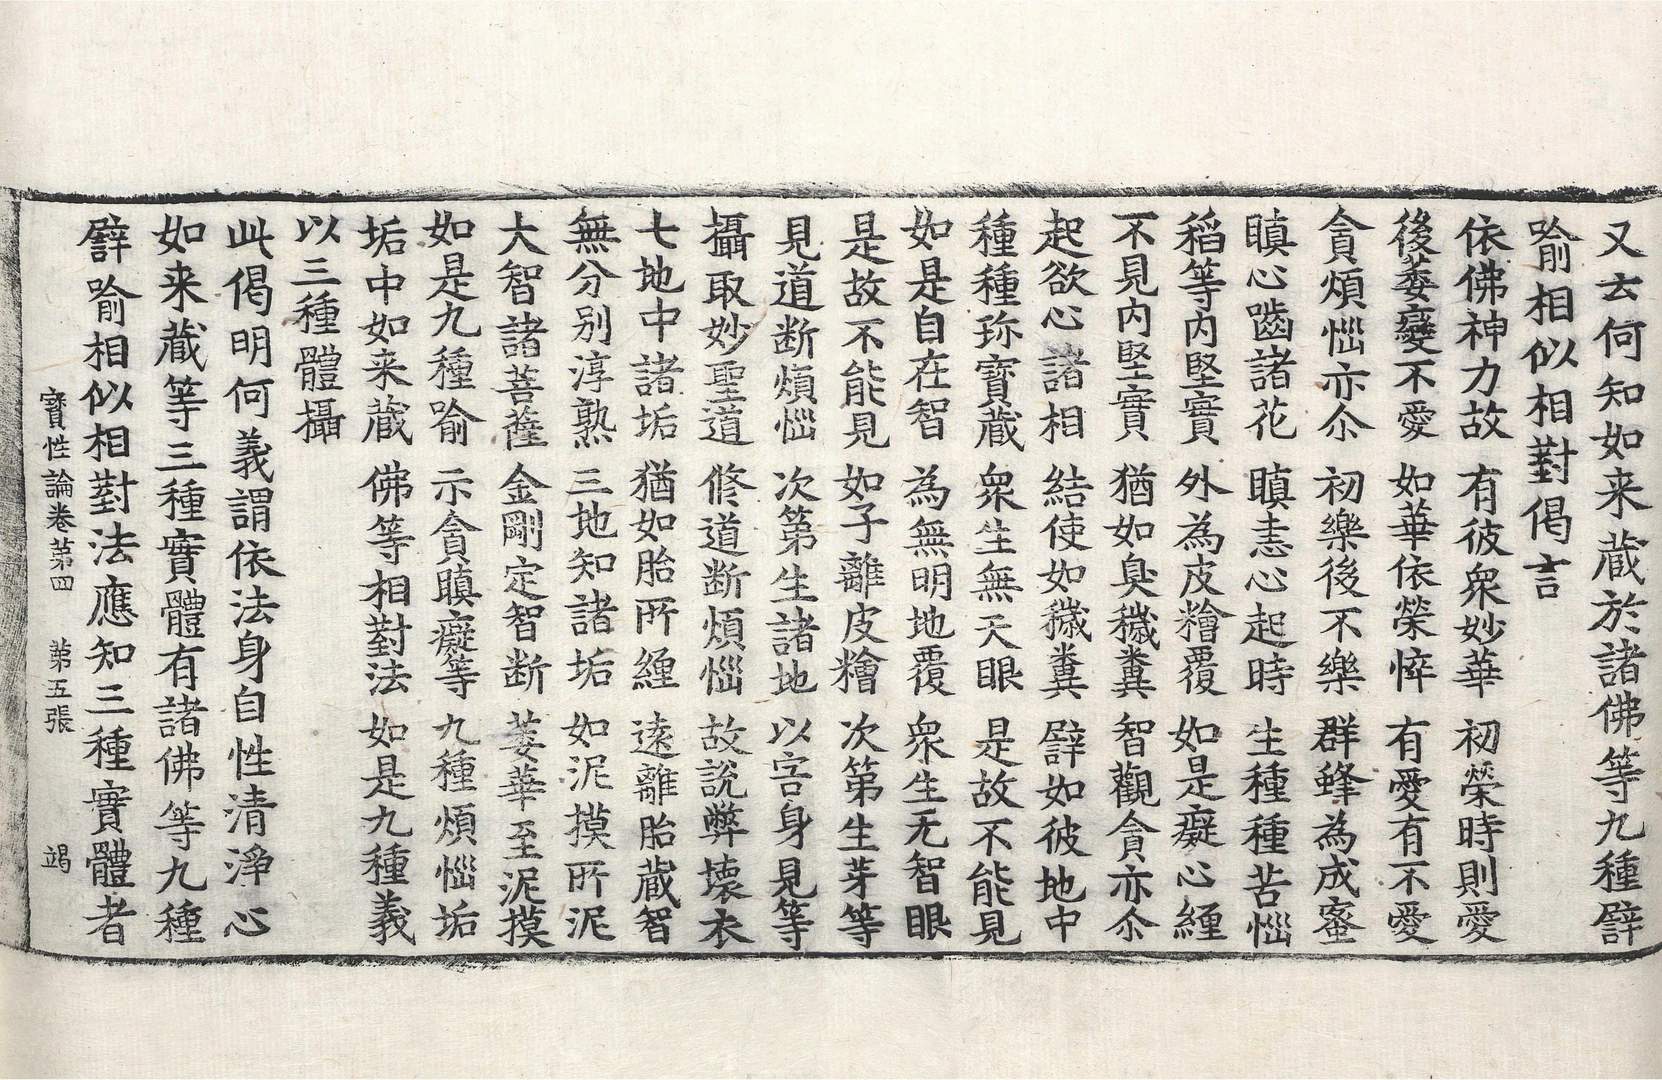 又云何知如来蔵於諸佛等九種譬
喻相似相對偈言
依佛神力故　有彼衆妙華　初榮時則愛
後萎變不愛　如華依榮悴　有愛有不愛
貪煩惱亦尒　初樂後不樂　群蜂為成蜜
瞋心嚙諸花　瞋恚心起時　生種種苦惱
稻等内堅實　外為皮糩覆　如是癡心纏
不見内堅實　猶如臭穢糞　智觀貪亦尒
起欲心諸相　結使如穢糞　譬如彼地中
種種珎寶蔵　衆生無天眼　是故不能見
如是自在智　為無明地覆　衆生无智眼
是故不能見　如子離皮糩　次第生芽等
見道断煩惱　次第生諸地　以害身見等
攝取妙聖道　修道断煩惱　故說弊壞衣
七地中諸垢　猶如胎所纏　遠離胎蔵智
無分别淳熟　三地知諸垢　如泥摸所泥
大智諸菩薩　金剛定智断　萎華至泥摸
如是九種喻　示貪瞋癡等　九種煩惱垢
垢中如来蔵　佛等相對法　如是九種義
以三種體攝
此偈明何義謂依法身自性清淨心
如来蔵等三種實體有諸佛等九種
譬喻相似相對法應知三種實體者
寶性論卷第四　第五張　竭